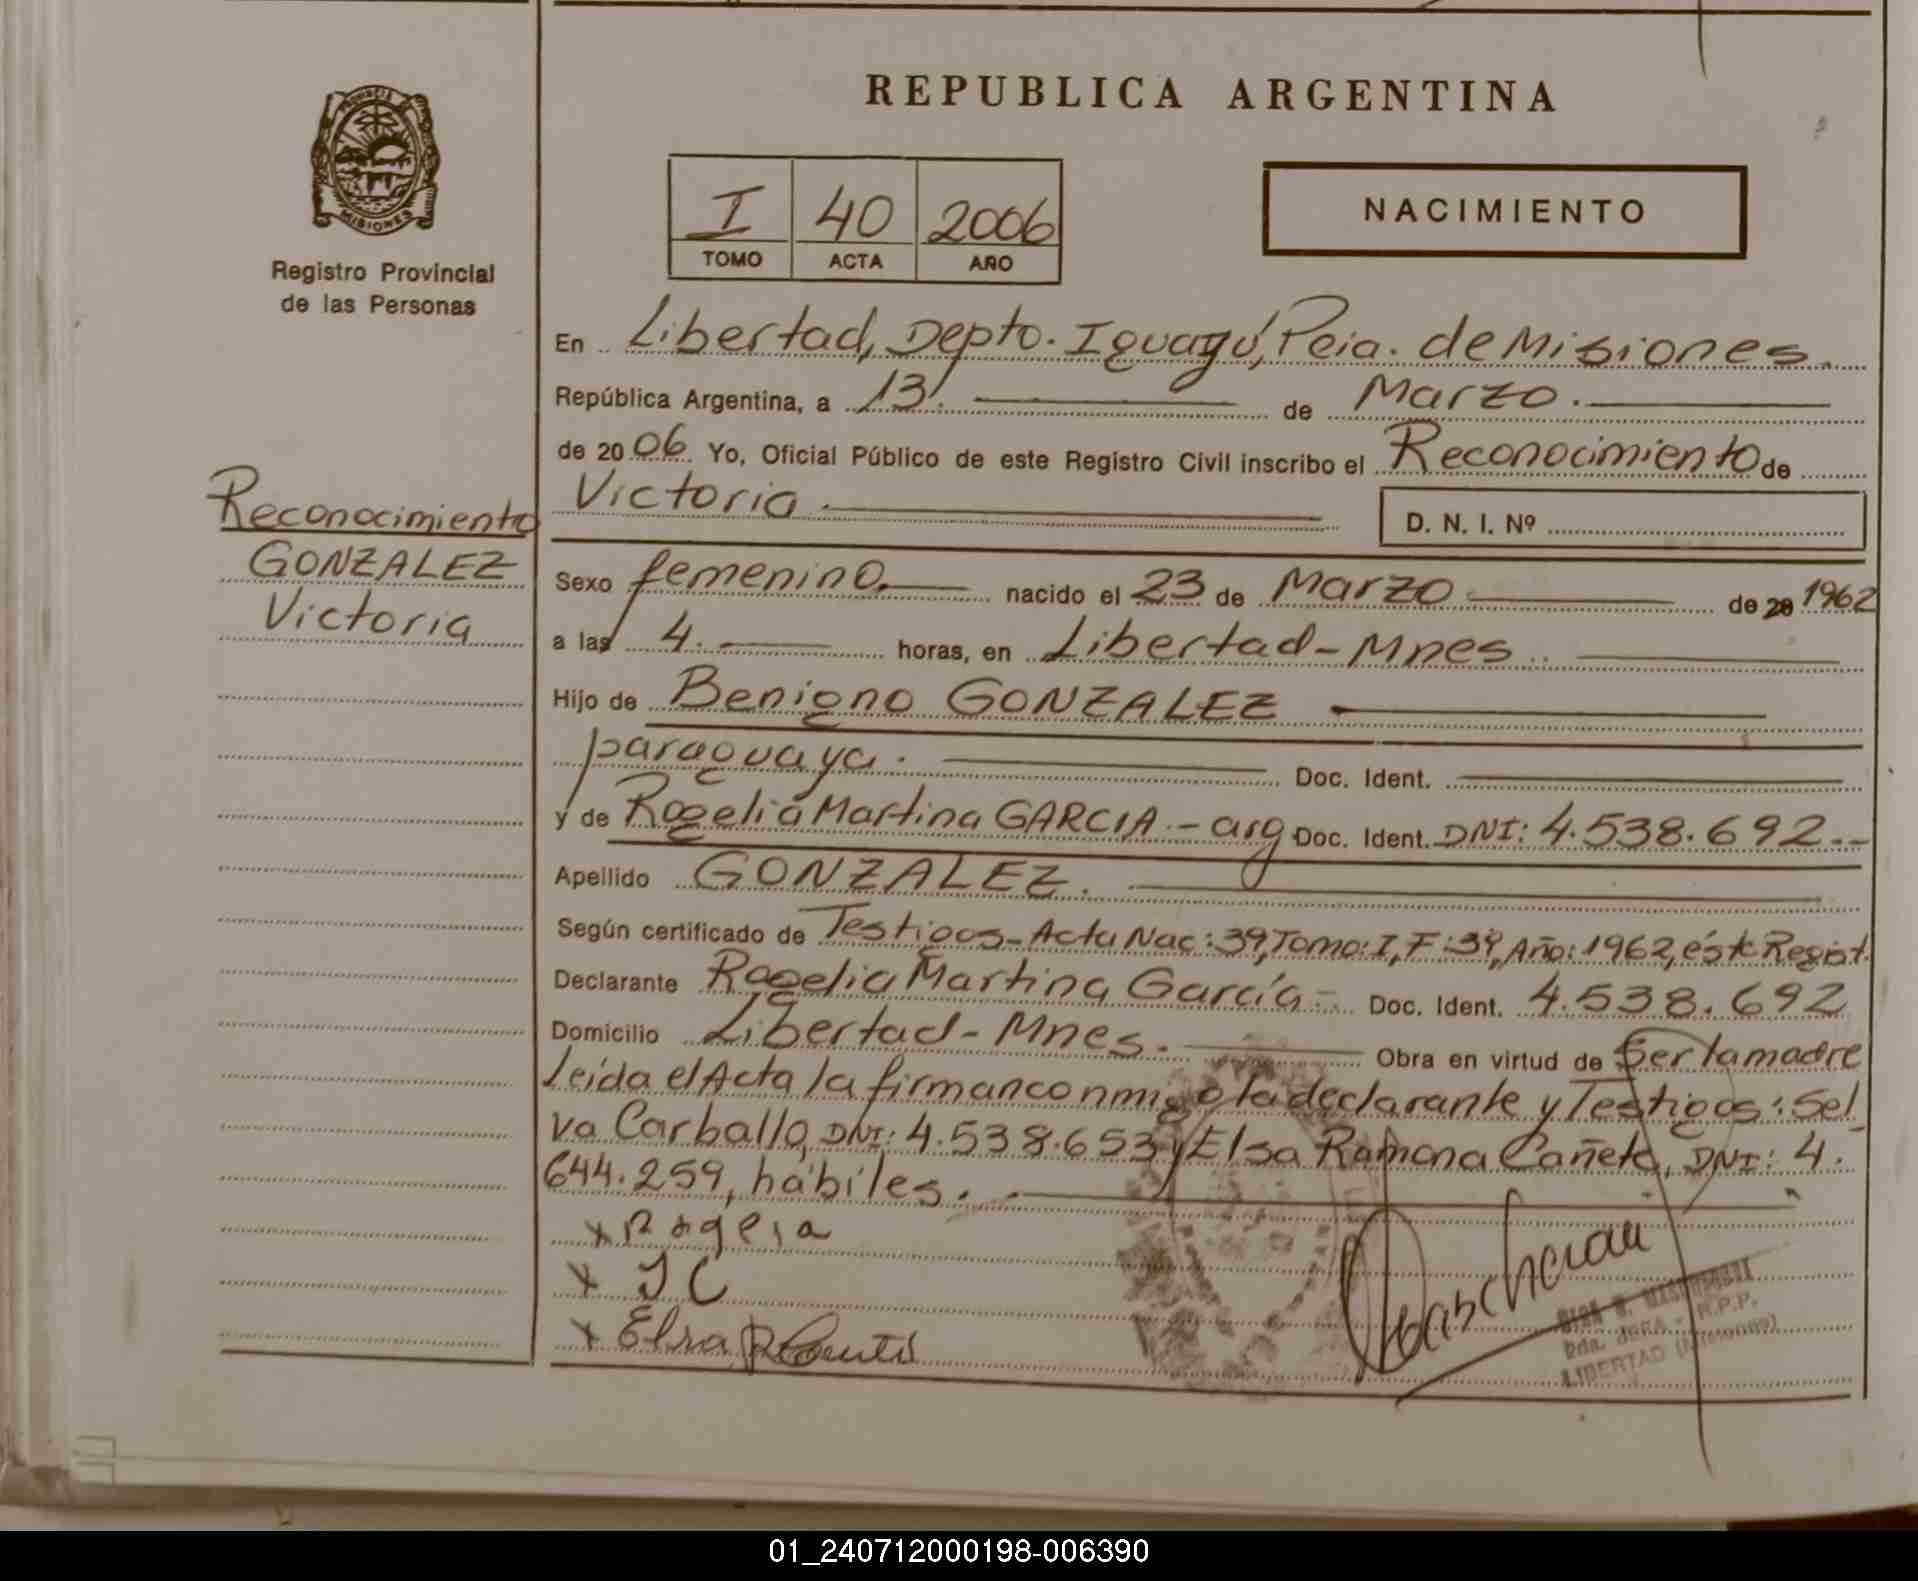 REPUBLICA ARGENTINA
PROVINCIA DE
MISIONES
Registro Provincial
de las Personas
I 40 2006
TOMO ACTA AÑO
NACIMIENTO
En Libertad, Depto. Iguazú, Pcia. de Misiones.
República Argentina, a 13. de Marzo.
de 2006 Yo, Oficial Público de este Registro Civil inscribo el Reconocimiento de
Victoria D. N. I. Nº
Reconocimiento
GONZALEZ
Victoria
Sexo femenino. nacido el 23 de Marzo de 20 1962
a las 4. horas, en Libertad-Mnes
Hijo de Benigno GONZALEZ
paraguaya. Doc. Ident.
y de Rogelia Martina GARCIA - arg Doc. Ident. DNI: 4.538.692.--
Apellido GONZALEZ.
Según certificado de Testigos-Acta Nac: 39, Tomo: I, F: 39, Año: 1962, éste Regist.
Declarante Rogelia Martina García- Doc. Ident. 4.538.692
Domicilio Libertad-Mnes. Obra en virtud de Ser la madre
Leída el Acta la firman conmigo la declarante y Testigos: Sel
va Carballo, DNI: 4.538.653 y Elsa Ramona Cañete, DNI: 4.
644.259, hábiles.
x Rogeia
x J C
x Elsa R
Pda. JEFA - R.P.P.
LIBERTAD (Misiones)
01_240712000198-006390